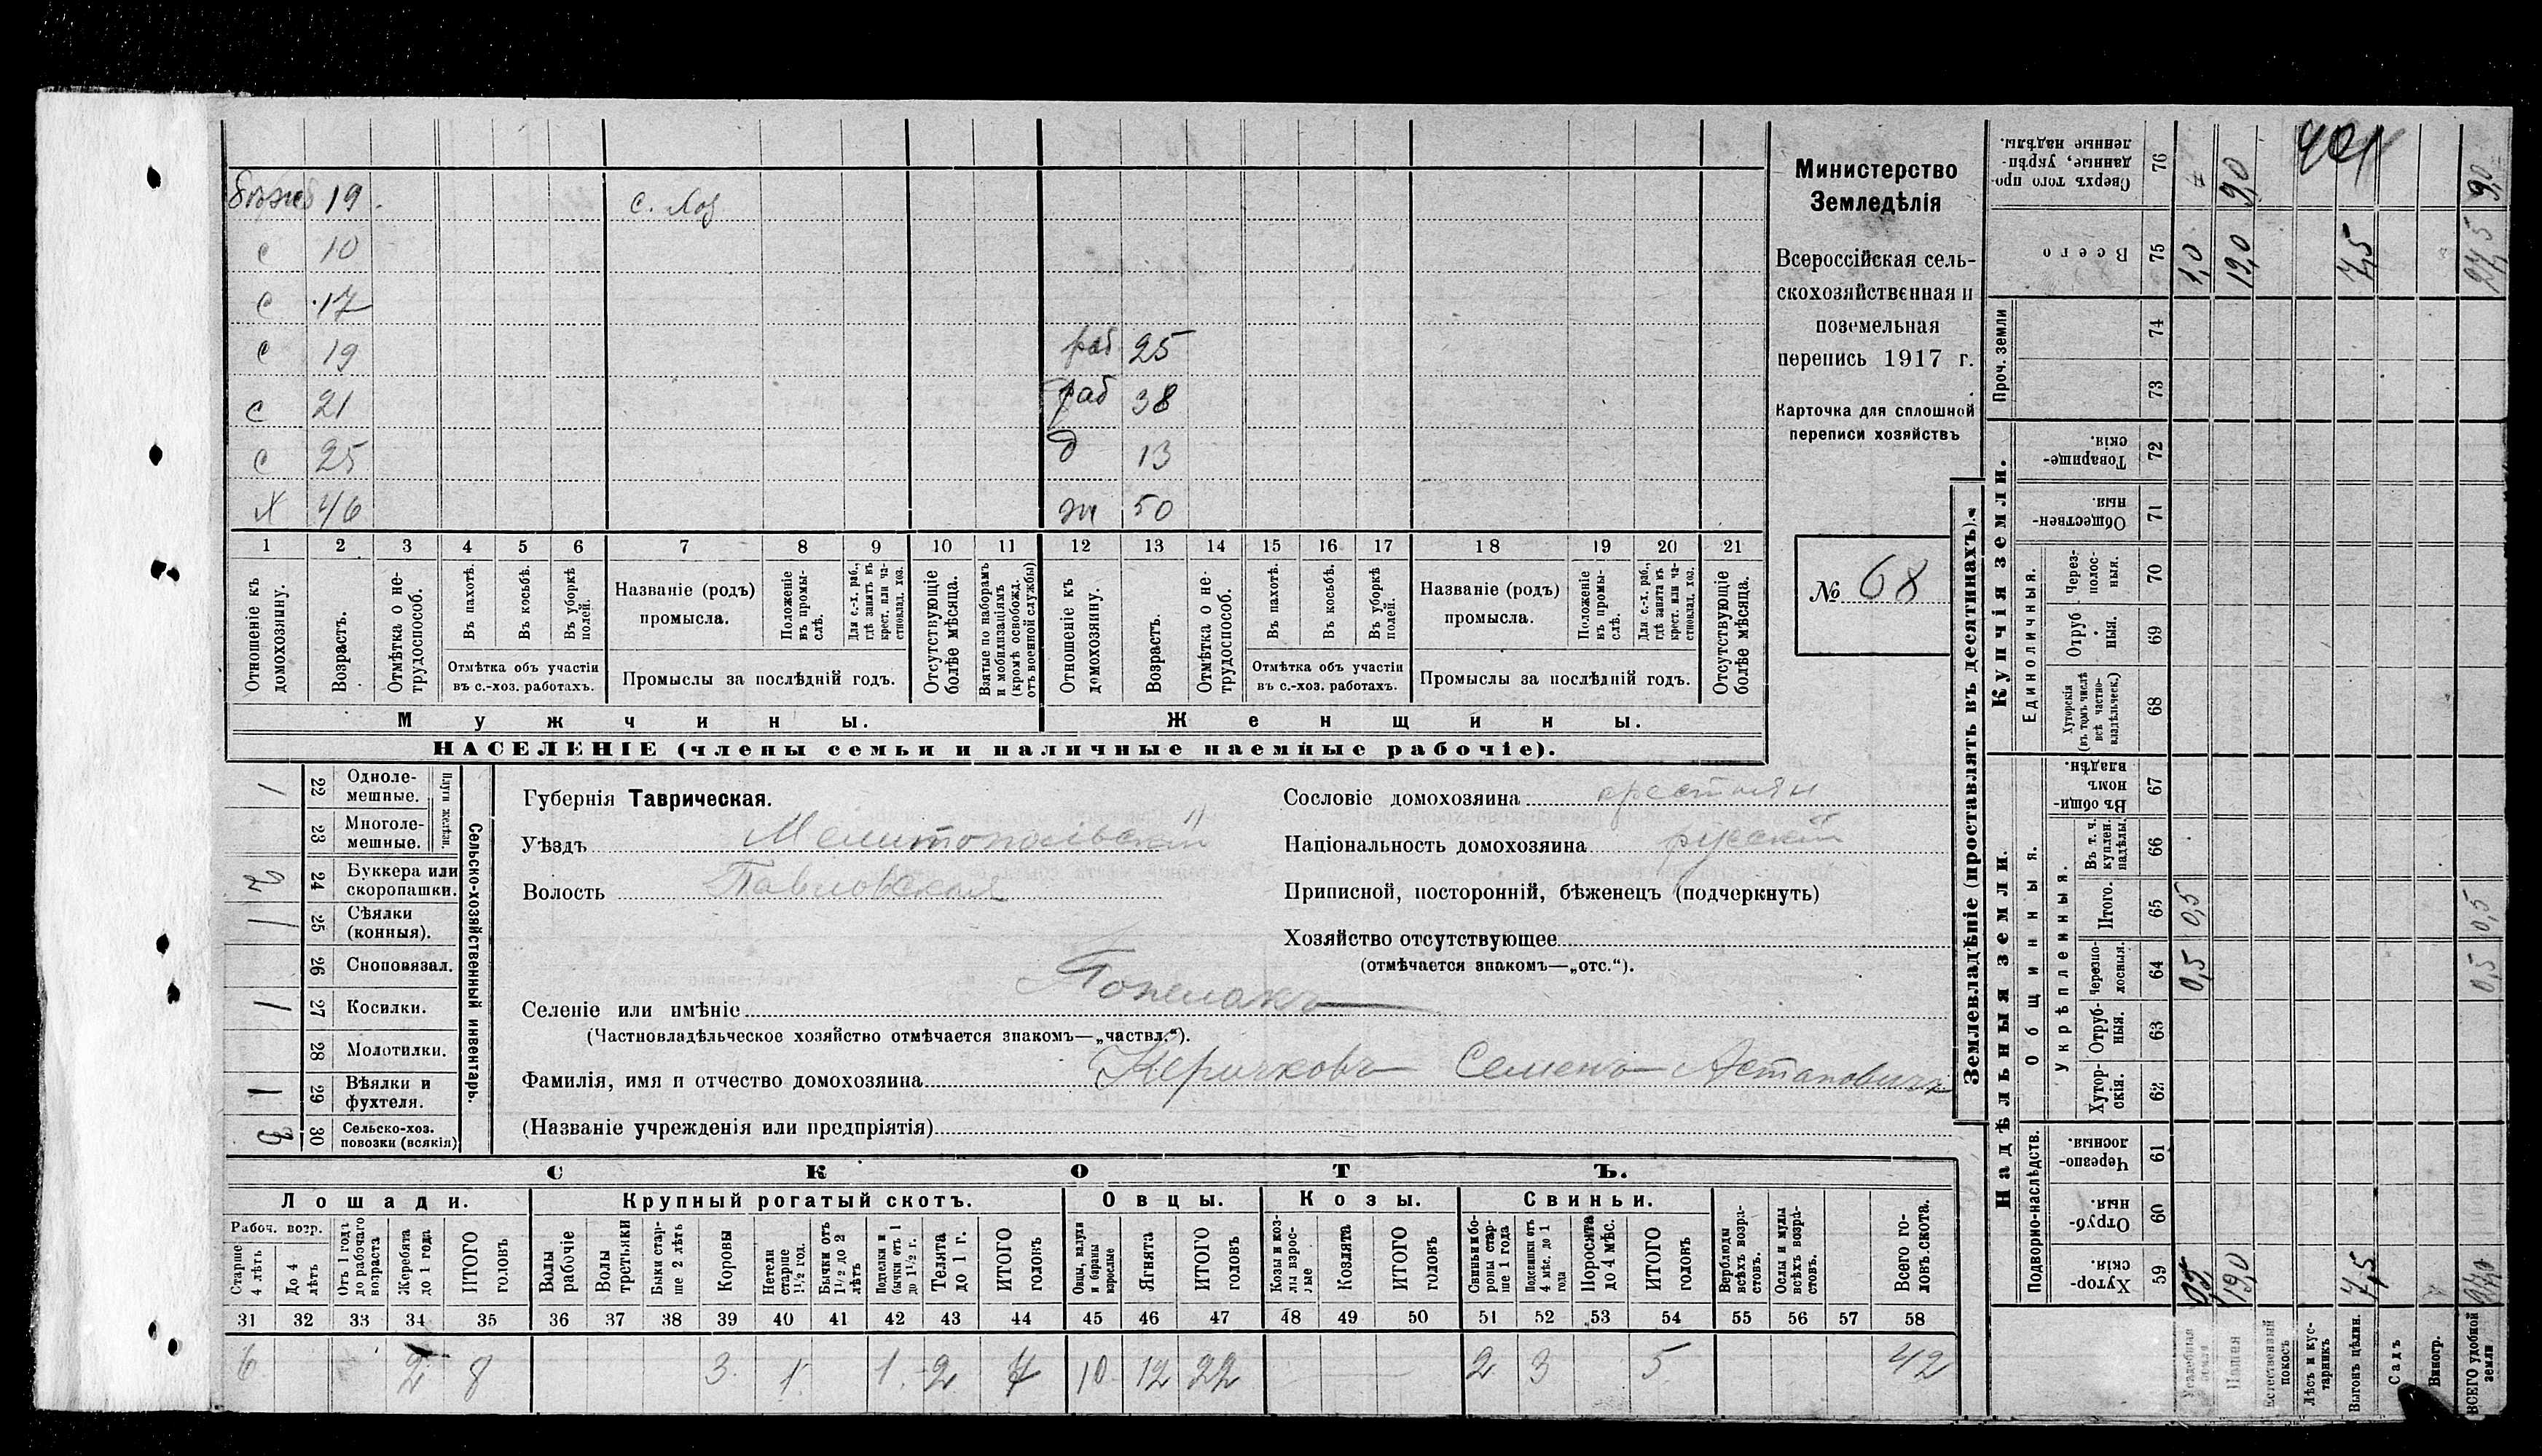 бѣжен 19 с. хоз
с 10
с 17
с 19 раб 25
с 21 раб 38
с 25 д 13
х 46 ж 50
1 2 3 4 5 6 7 8 9 10 11 12 13 14 15 16 17 18 19 20 21
Отношеніе къ домохозяину.
Возрастъ.
Отмѣтка о нетрудоспособ.
Въ пахотѣ.
Въ косьбѣ.
Въ уборкѣ полей.
Отмѣтка объ участіи
въ с.-хоз. работахъ.
Названіе (родъ)
промысла.
Положеніе въ промыслѣ.
Для с.-х. раб., гдѣ занятъ въ крест. или частновлад. хоз.
Промыслы за послѣдній годъ.
Отсутствующіе болѣе мѣсяца.
Взятые по наборамъ и мобилизаціямъ (кромѣ освобожд. отъ военной службы)
Отношеніе къ домохозяину.
Возрастъ.
Отмѣтка о нетрудоспособ.
Въ пахотѣ.
Въ косьбѣ.
Въ уборкѣ полей.
Отмѣтка объ участіи
въ с.-хоз. работахъ.
Названіе (родъ)
промысла.
Положеніе въ промыслѣ.
Для с.-х. раб., гдѣ занята въ крест. или частновлад. хоз.
Промыслы за послѣдній годъ.
Отсутствующіе болѣе мѣсяца.
Мужчины.
Женщины.
НАСЕЛЕНІЕ (члены семьи и наличные наемные рабочіе).
Министерство
Земледѣлія
Всероссійская сель-
скохозяйственная и
поземельная
перепись 1917 г.
Карточка для сплошной
переписи хозяйствъ
№ 68
1 22 Одноле-
мешные.
23 Многоле-
мешные.
Плуги желѣзн.
2 24 Буккера или
скоропашки.
1 25 Сѣялки
(конныя).
26 Сноповязал.
1 27 Косилки.
28 Молотилки.
1 29 Вѣялки и
фухтеля.
3 30 Сельско-хоз.
повозки (всякія)
Сельско-хозяйственный инвентарь.
Губернія Таврическая.
Уѣздъ Мелитопольскій
Волость Павловская
Сословіе домохозяина крестьян
Національность домохозяина русскій
Приписной, посторонній, бѣженецъ (подчеркнуть)
Хозяйство отсутствующее
(отмѣчается знакомъ—„отс.“).
Селеніе или имѣніе
(Частновладѣльческое хозяйство отмѣчается знакомъ—„частвл.“).
Фамилія, имя и отчество домохозяина Керичковъ Семенъ Астаповичъ
(Названіе учрежденія или предпріятія)
СКОТЪ.
Лошади. Крупный рогатый скотъ. Овцы. Козы. Свиньи.
Рабоч. возр.
Старше 4 лѣтъ
До 4 лѣтъ
Отъ 1 года до рабочаго возраста
Жеребята до 1 года
ИТОГО головъ
Волы рабочіе
Волы третьяки
Быки старше 2 лѣтъ
Коровы
Нетели старше 1½ год.
Бычки отъ 1½ до 2 лѣтъ
Подтелки и бычки отъ 1 до 1½ г.
Телята до 1 г.
ИТОГО головъ
Овцы, валухи и бараны взрослые
Ягнята
ИТОГО головъ
Козы и козлы взрослые
Козлята
ИТОГО головъ
Свиньи и бороны старше 1 года
Подсвинки отъ 4 мѣс. до 1 года
Поросята до 4 мѣс.
ИТОГО головъ
Верблюды всѣхъ возрастовъ.
Ослы и мулы всѣхъ возрастовъ.
Всего головъ скота.
31 32 33 34 35 36 37 38 39 40 41 42 43 44 45 46 47 48 49 50 51 52 53 54 55 56 57 58
6 2 8 3 1 1 2 7 10 12 22 2 3 5 42
Землевладѣніе (проставлять въ десятинахъ).
Надѣльныя земли.
Купчія земли.
Проч. земли
Подворно-наслѣдств.
Общинныя.
Укрѣпленныя.
Единоличныя.
Сверхъ того проданные, укрѣпленные надѣлы. 76 9,0 9,0
Всего 75 1,0 19,0 7,5 27,5
74
73
Товарищескія. 72
Общественныя 71
Черезполосныя. 70
Отрубныя. 69
Хуторскія (въ томъ числѣ всѣ частновладѣльческ.) 68
Въ общинномъ владѣн. 67
Въ т. ч. куплен. надѣлы. 66
Итого. 65 0,5 0,5
Черезполосныя. 64 0,5 0,5
Отрубныя. 63
Хуторскія. 62
Черезполосныя 61
Отрубныя. 60
Хуторскія 59 0,5 19,0 7,5
Усадебная земля
Пашня
Естественный покосъ
Лѣсъ и кустарникъ
Выгонъ цѣлин.
Садъ
Виногр.
ВСЕГО удобной земли